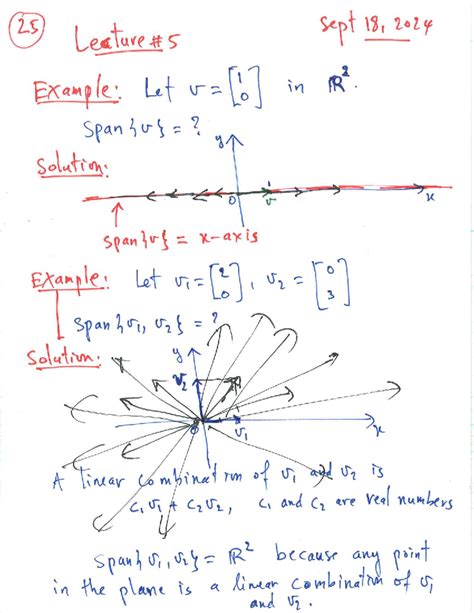 25
Lecture #5
Sept 18, 2024
Example: Let v = [1 0] in ℝ².
Span{v} = ?
y
Solution:
0 v x
Span{v} = x-axis
Example: Let v₁ = [2 0], v₂ = [0 3]
Span{v₁, v₂} = ?
Solution:
y
v₂
0 v₁ x
A linear combination of v₁ and v₂ is
c₁v₁ + c₂v₂, c₁ and c₂ are real numbers
Span{v₁, v₂} = ℝ² because any point
in the plane is a linear combination of v₁
and v₂.